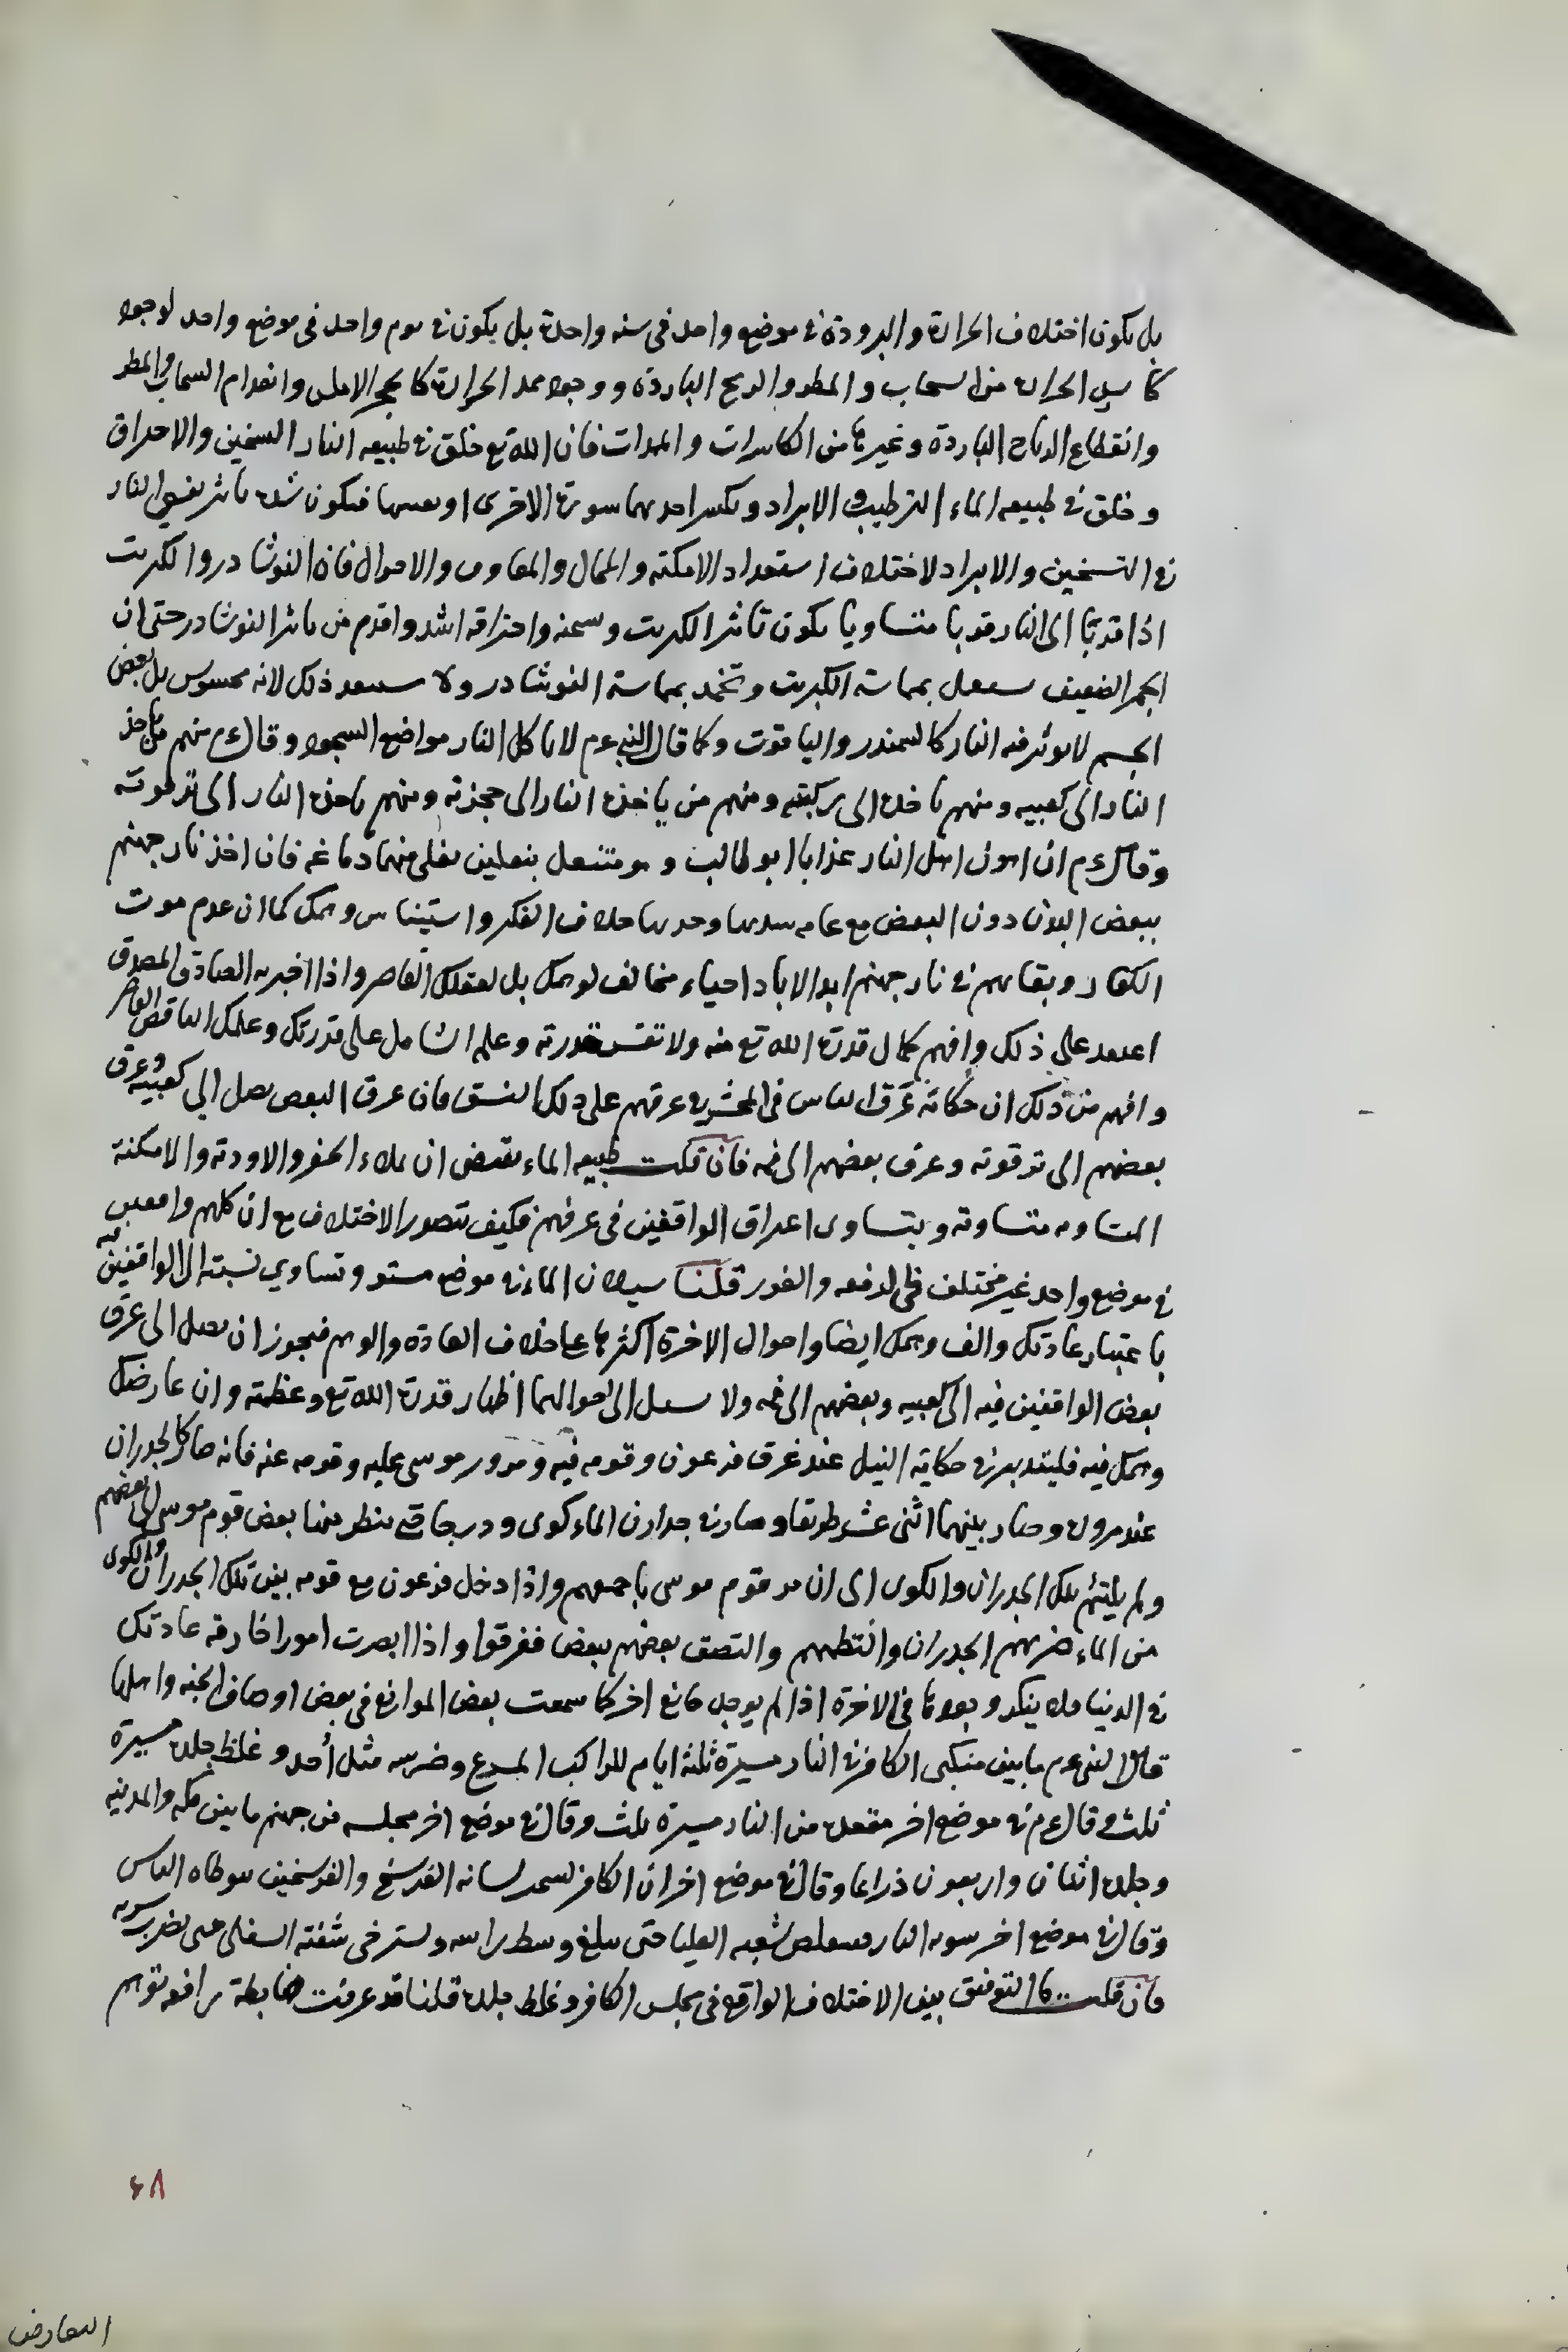 بل يكون اختلاف الحرارة والبرودة في موضع واحد في سنه واحدة بل يكون في يوم واحد في موضع واحد لوجود
الحرارة من السحاب والمطر والريح الباردة ووجود ممد الحرارة كالحجر الاملس وانعدام السحاب والمطر
وانقطاع الرياح الباردة وغيرها من الكاسرات والممدات فان الله تع خلق في طبيعه النار السخين والاحراق
وخلق في طبيعه الماء الترطيب والابراد وبكسر احديهما سورة الاخرى او بعضها فيكون شدة تاثر بعض النار
في التسخين والابراد لاختلاف استعداد الامكنه والمحال والمعاون والاحوال فان النوشادر والكبريت
اذا قربا الى النار قربا متساويا يكون تاثر الكبريت وسخنه واحتراقه اشد واقدم من تاثر النوشادر حتى ان
الجمر الضعيف يشعل بمماسة الكبريت وتخمد بمماسة النوشادر ولا يستبعد ذلك لانه محسوس بل بعض
الجسم لا يوثر فيه النار كالسمندر والياقوت وكما قال النبي عم لا ياكل النار مواضع السجود وقال عم منهم من ياخذ
النار الى كعبيه ومنهم ياخذه الى ركبتيه ومنهم من ياخذه النار الى حجزته ومنهم ياخذه النار الى ترقوته
وقال عم ان اهون اهل النار عذابا ابو طالب وهو متنعل بنعلين يغلي منهما دماغه فان اخذ نار جهنم
ببعض البدن دون البعض مع خلاف الفكر واستيناس وهمك كما ان عدم موت
الكفار وبقائهم في نار جهنم ابد الاباد احياء مخالف لوهمك بل لعقلك القاصر واذا اخبر به الصادق المصدق
اعتمد على ذلك وافهم كمال قدرة الله تع منه ولا تقس قدرته وعلمه الشامل على قدرتك وعلمك الناقص القاصر
وافهم من ذلك ان حكاية غرق الناس في المحشر في عرقهم على ذلك النسق فان عرق البعض يصل الى كعبيه وعرق
بعضهم الى ترقوته وعرق بعضهم الى فمه فان قلت طبيعه الماء يقتضي ان يملاء الحفر والاودته والامكنة
المتساويه متساوية ويتساوى اعراق الواقفين في عرقهم فكيف يتصور الاختلاف مع ان كلهم واقفين
في موضع واحد غير مختلف في الرفعه والغور قلنا سيلان الماء في موضع مستو وتساوي نسبته الى الواقفين فيه
باعتبار عادتك والف وهمك ايضا واحوال الاخرة اكثرها على خلاف العادة والوهم فيجوز ان يصل الى عرق
بعض الواقفين فيه الى كعبيه وبعضهم الى فمه ولا اظهار قدرة الله تع وعظمته وان عارضك
وهمك فيه فليتدبر في حكاية النيل عند غرق فرعون وقومه فيه ومرور موسى عليه وقومه عنه فانه صار كالجدران
عند مروره وصار بينهما اثنى عشر طريقا وصار في جدارن الماء كوى ودرجا حتى ينظر منها بعض قوم موسى الى بعضهم
ولم يلتئم تلك الجدران والكوى الى ان مر قوم موسى باجمعهم واذا دخل فرعون مع قومه بين تلك الجدران والكوى
من الماء ضربهم الجدران وانتظمهم والتصق بعضهم ببعض فغرقوا واذا ابصرت امورا خارقه عادتك
في الدنيا فلا ينكر وجودها في الاخرة اذا لم يوجد مانع اخر كما سمعت بعض الموانع في بعض اوصاف الجنه واهلها
قال النبي عم ما بين منكبي الكافر في النار مسيرة ثلثة ايام للراكب المسرع وضرسه مثل أحد وغلظ جلده مسيرة
ثلث وقال عم في موضع اخر مقعده من النار مسيرة ثلث وقال في موضع اخر مجلسه من جهنم ما بين مكه والمدينه
وجلده اثنان واربعون ذراعا وقال في موضع اخر ان الكافر ليسحب لسانه الفرسخ والفرسخين يتوطاه الناس
وقال في موضع اخر تشويه النار فيتقلص شفته العليا حتى يبلغ وسط راسه ويسترخى شفته السفلى حتى يضرب سرته
فان قلت ما التوفيق بين الاختلاف الواقع في مجلس الكافر وغلظ جلده قلنا قد عرفت ضابطة رافعه توهم
٦٨
التعارض